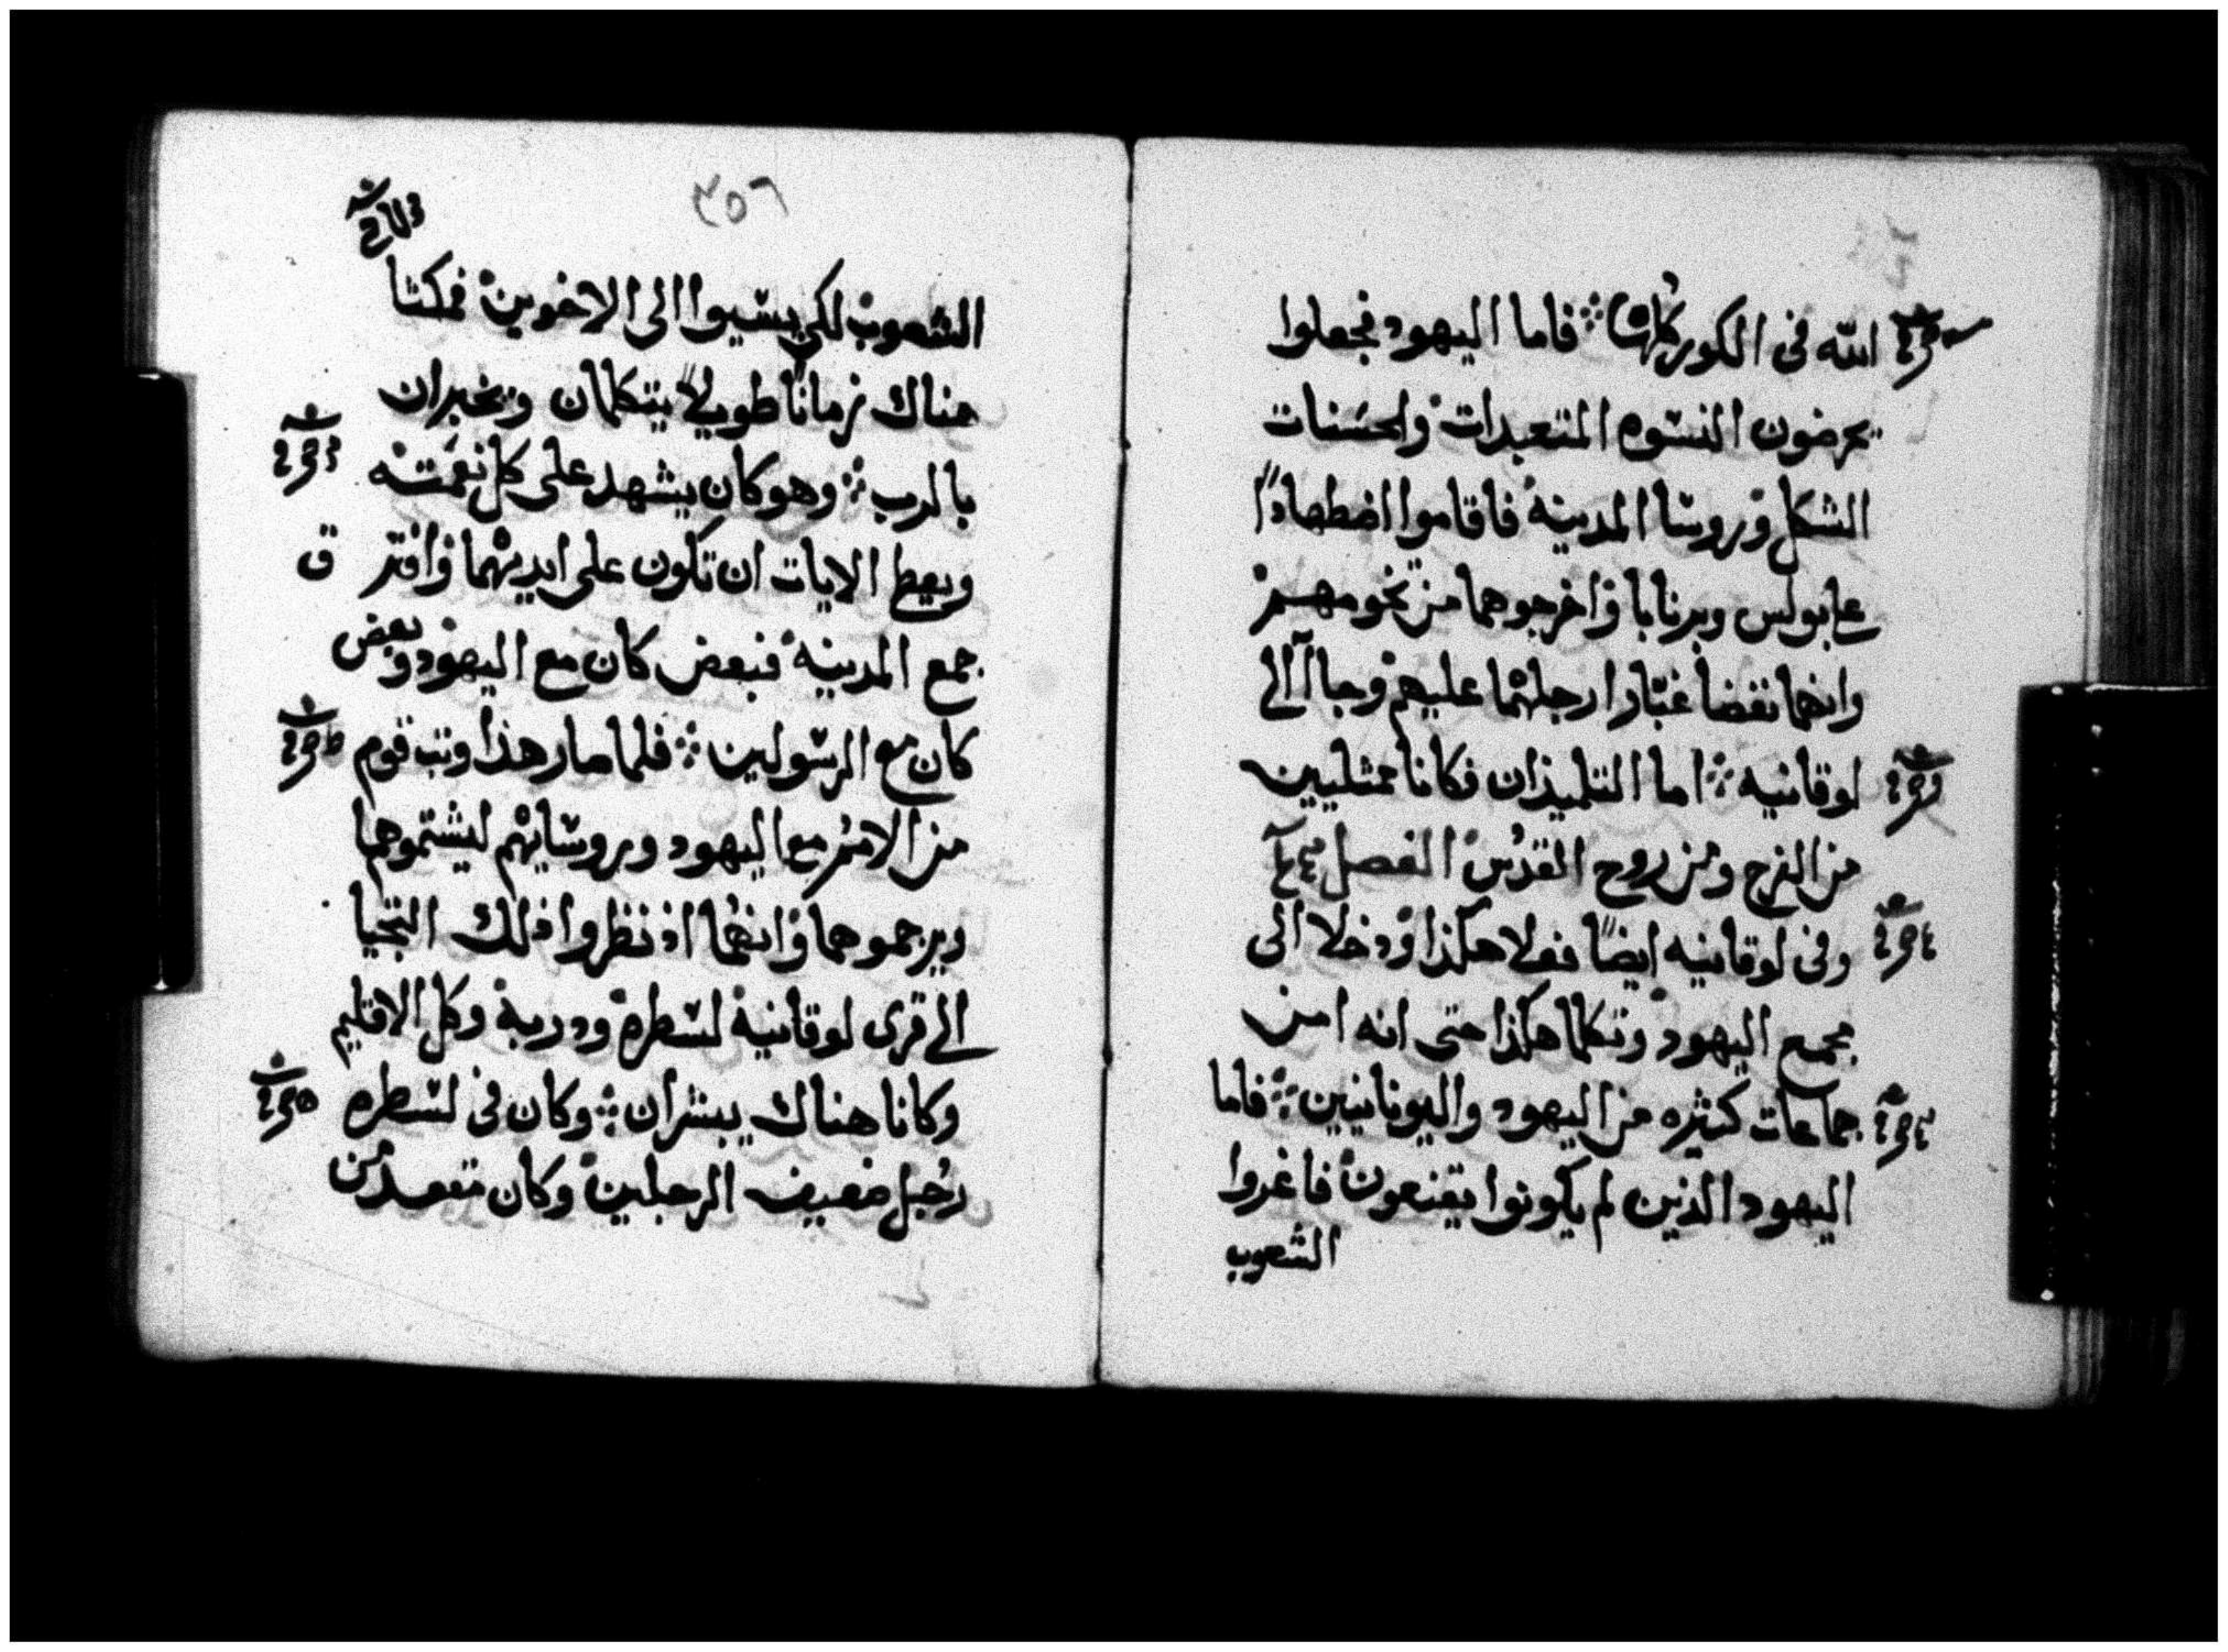 الله فى الكور كلها ܀ فاما اليهود فجعلوا
يحرضون النسوه المتعبدات والحسنات
الشكل وروسا المدينة فاقاموا اضطهادًا
على بولس وبرنابا واخرجوهما من تخومهم
وانهما نفضا غبار ارجلهما عليهم وجاا الى
لوقانيه ܀ اما التلميذان فكانا ممتليين
من الفرح ومن روح القدس الفصل
وفى لوقانيه ايضًا فعلا هكذا ودخلا الى
مجمع اليهود وتكلما هكذا حتى انه امن
جماعات كثيره من اليهود واليونانيين ܀ فاما
اليهود الذين لم يكونوا يقنعون فاغروا
الشعوب
٣٥٦
الشعوب لكى يسيوا الى الاخوين فمكثا
هناك زمانًا طويلاً يتكلمان ويخبران
بالرب ܀ وهو كان يشهد على كل نعمته
ويعط الايات ان تكون على ايديهما وافترق
جمع المدينة فبعض كان مع اليهود وبعض
كان مع الرسولين ܀ فلما صار هذا وثب قوم
من الامم مع اليهود وبروسايهم ليشتموهما
ويرجموهما وانهما اذ نظروا ذلك التجيا
الى قرى لوقانية لسطرة ودربة وكل الاقليم
وكانا هناك يبشران ܀ وكان فى لسطره
رجل ضعيف الرجلين وكان مقعد من